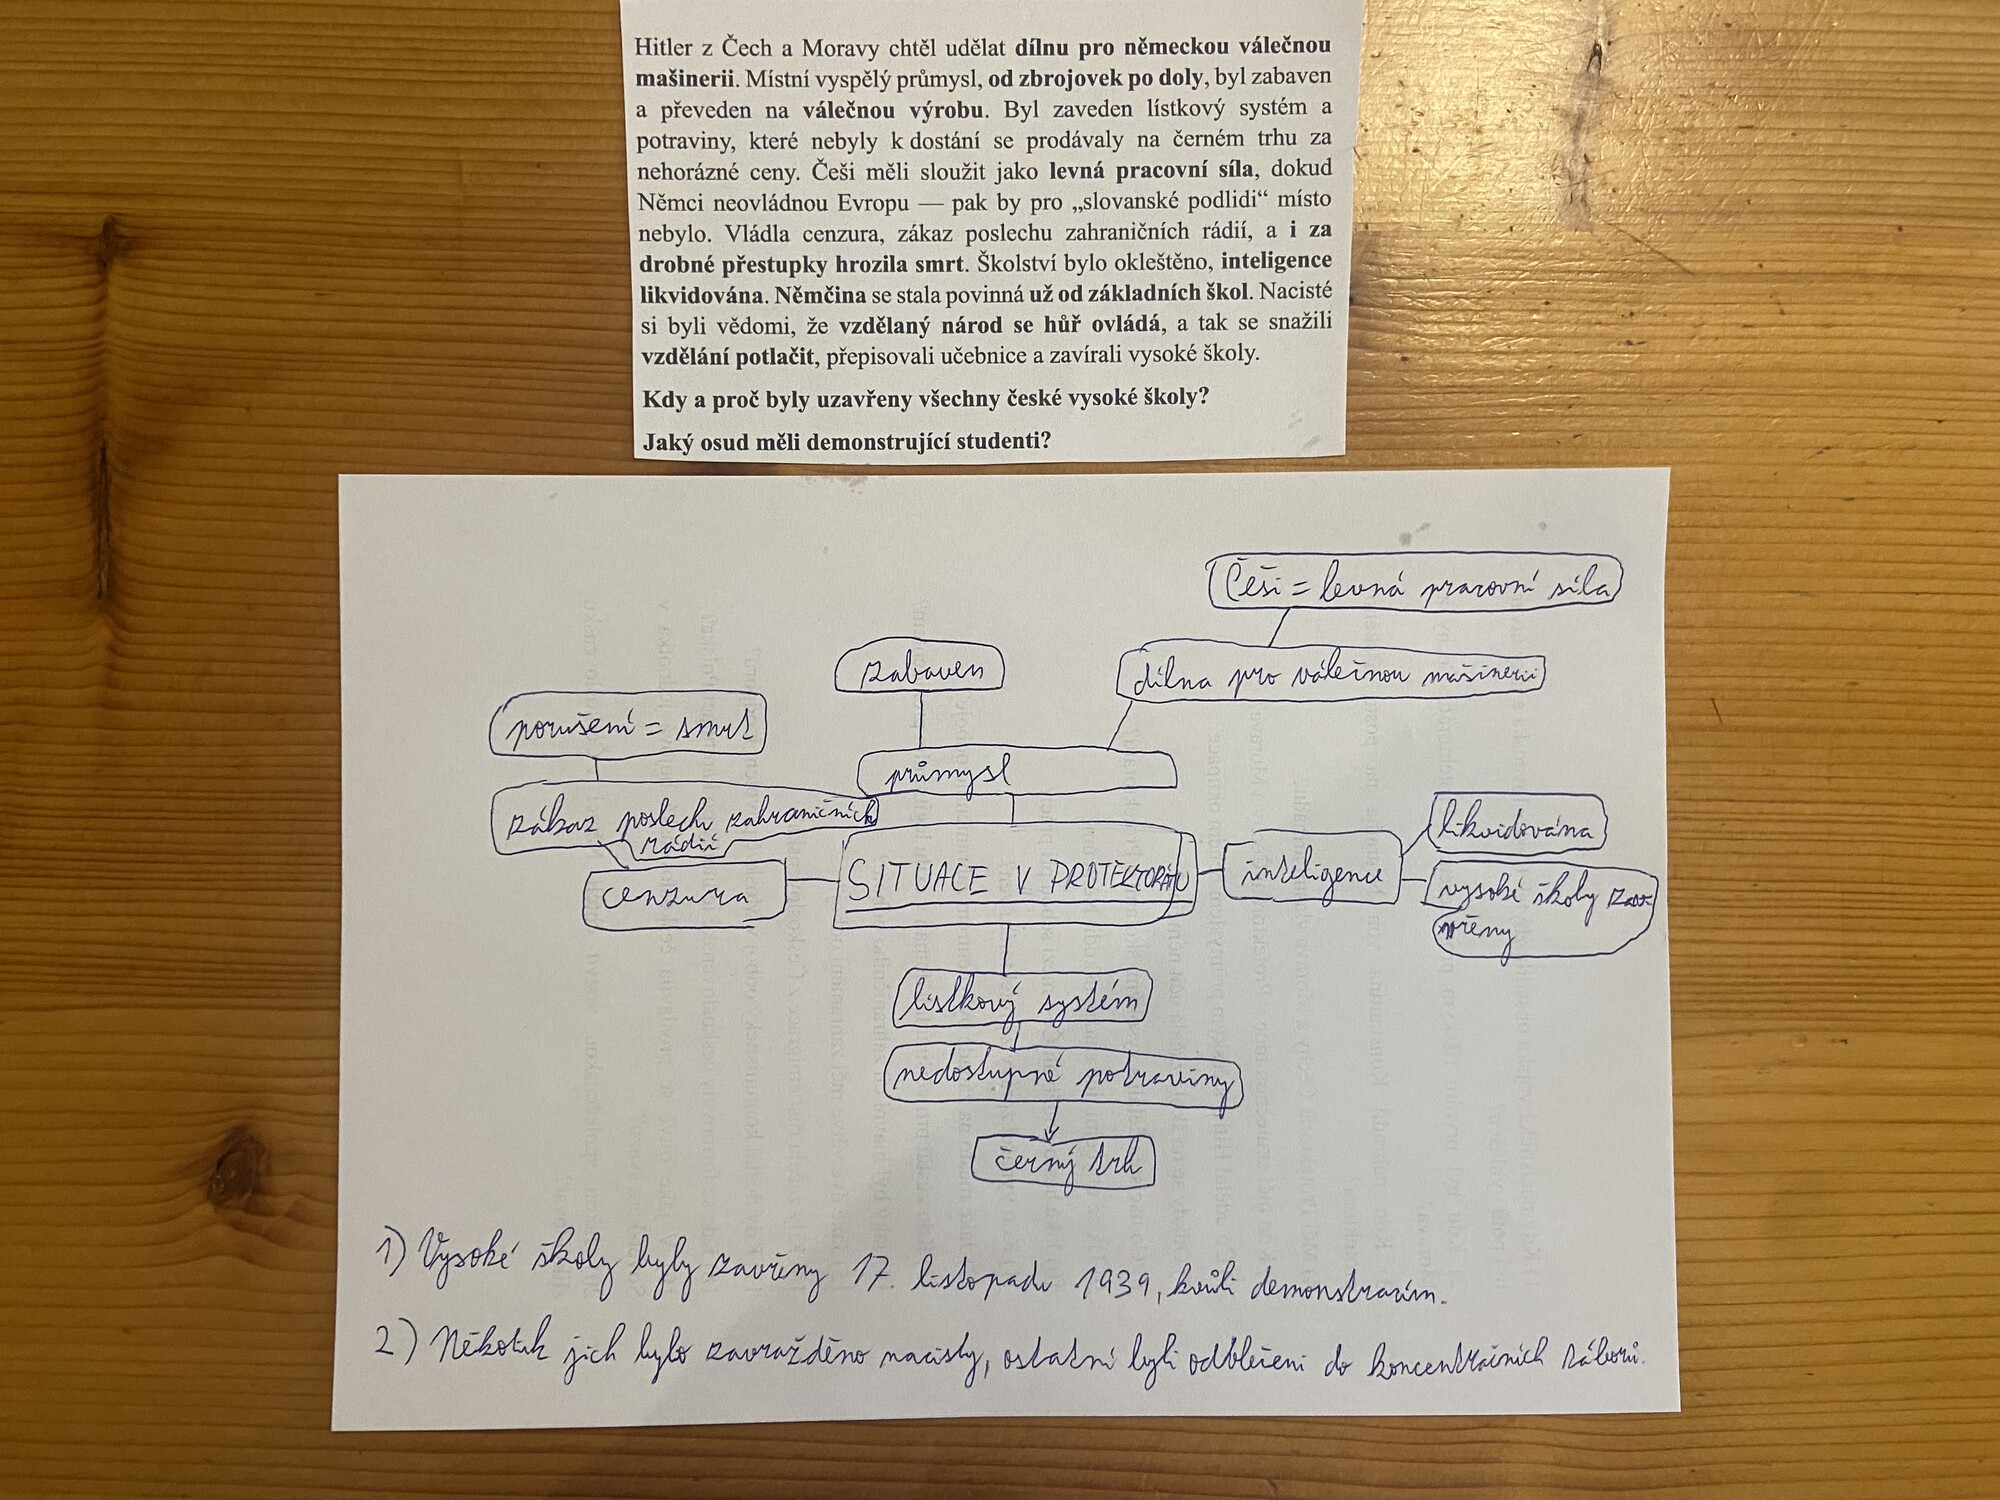 Hitler z Čech a Moravy chtěl udělat dílnu pro německou válečnou
mašinerii. Místní vyspělý průmysl, od zbrojovek po doly, byl zabaven
a převeden na válečnou výrobu. Byl zaveden lístkový systém a
potraviny, které nebyly k dostání se prodávaly na černém trhu za
nehorázné ceny. Češi měli sloužit jako levná pracovní síla, dokud
Němci neovládnou Evropu — pak by pro „slovanské podlidi“ místo
nebylo. Vládla cenzura, zákaz poslechu zahraničních rádií, a i za
drobné přestupky hrozila smrt. Školství bylo okleštěno, inteligence
likvidována. Němčina se stala povinná už od základních škol. Nacisté
si byli vědomi, že vzdělaný národ se hůř ovládá, a tak se snažili
vzdělání potlačit, přepisovali učebnice a zavírali vysoké školy.
Kdy a proč byly uzavřeny všechny české vysoké školy?
Jaký osud měli demonstrující studenti?
Češi = levná pracovní síla
zabaven
dílna pro válečnou mašinerii
porušení = smrt
průmysl
zákaz poslech zahraničních
rádií
likvidována
cenzura
SITUACE V PROTEKTORÁTU
inteligence
vysoké školy zav-
řeny
lístkový systém
nedostupné potraviny
černý trh
1) Vysoké školy byly zavřeny 17. listopadu 1939, kvůli demonstracím.
2) Několik jich bylo zavražděno nacisty, ostatní byli odvlečeni do koncentračních táborů.